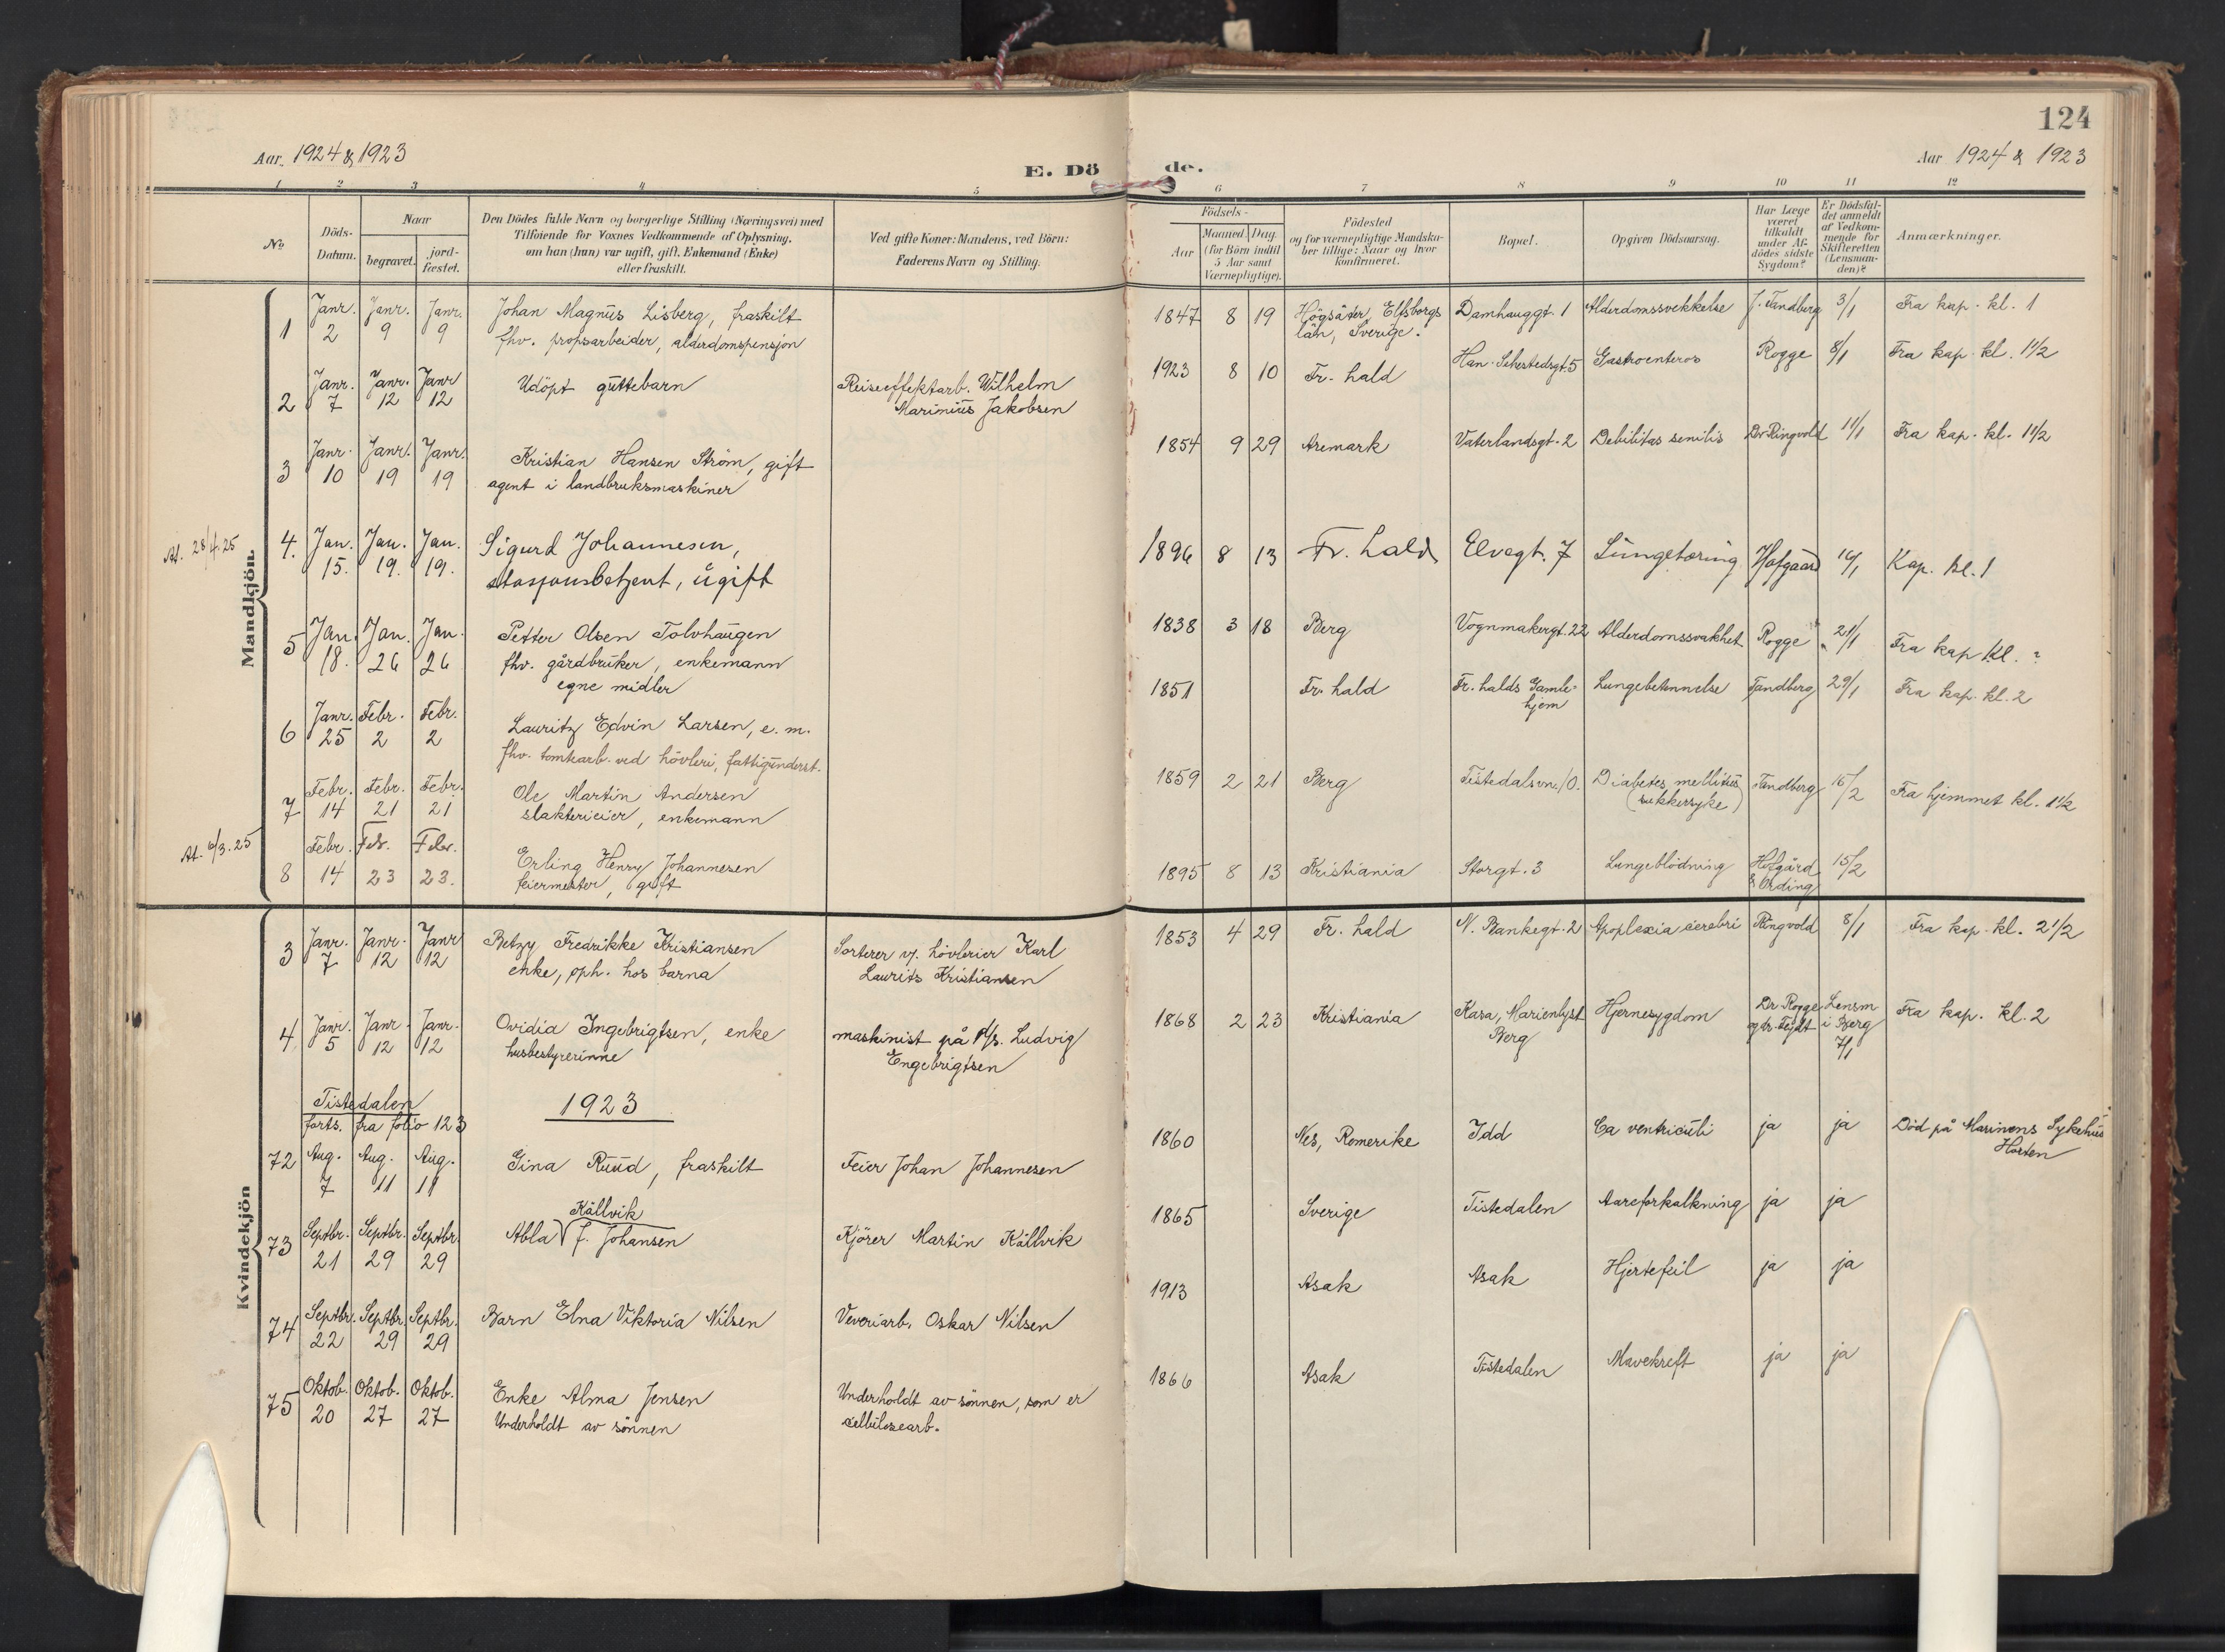 124
Aar. 1924 & 1923
E. Dö
de.
Aar 1924 & 1923
1 2 3 4 5 6 7 8 9 10 11 12
No
Döds-Datum.
Naar
begravet.
jord-fæstet.
Den Dödes fulde Navn og borgerlige Stilling (Næringsvei) med
Tilföiende for Voxnes Vedkommende af Oplysning,
om han (hun) var ugift, gift, Enkemand (Enke)
eller fraskilt.
Ved gifte Koner: Mandens, ved Börn:
Faderens Navn og Stilling.
Födsels-
Aar
Maaned Dag.
(for Börn indtil
5 Aar samt
Værnepligtige).
Födested
og for værnepligtige Mandska-
ber tillige: Naar og hvor
konfirmeret.
Bopæl.
Opgiven Dödsaarsag.
Har Læge
været
tilkaldt
under Af-
dödes sidste
Sygdom?
Er Dödsfal-
det anmeldt
af Vedkom-
mende for
Skifteretten
(Lensman-
den)?
Anmærkninger.
Mandkjön.
1 Janr. 2 Janr. 9 Janr. 9 Johan Magnus Lisberg, fraskilt
fhv. propsarbeider, alderdomspensjon
1847 8 19 Högsäter, Elfsborgs
län, Sverige. Damhauggt. 1 Alderdomssvekkelse J. Tandberg 3/1 Fra kap. kl. 1
2 Janr. 7 Janr. 12 Janr 12 Udöpt guttebarn Reiseeffektarb. Wilhelm
Marinius Jakobsen
1923 8 10 Fr. hald Han. Sehestedsgt. 5 Gastroenteros Rogge 8/1 Fra kap. kl. 1 1/2
3 Janr. 10 Janr. 19 Janr. 19 Kristian Hansen Ström, gift
agent i landbruksmaskiner
1854 9 29 Aremark Vaterlandsgt. 2 Debilitas senilis Dr Ringvold 11/1 Fra kap. kl. 1 1/2
At. 28/4.25
4. Jan. 15. Jan. 19. Jan. 19. Sigurd Johannesen,
stasjonsbetjent, ugift
1896 8 13 Fr. hald Elvegt. 7 Lungetæring Hofgaard 16/1 Kap. kl. 1
5 Jan. 18. Jan. 26 Jan. 26 Petter Olsen Tolvhaugen
fhv. gårdbruker, enkemann
egne midler
1838 3 18 Berg Vognmakergt. 22 Alderdomssvakhet Rogge 21/1 Fra kap kl. ?
6 Janr. 25 Febr. 2 Febr. 2 Lauritz Edvin Larsen, e. m.
fhv. tomtearb. ved hövleri, fattigunderst.
1851 Fr. hald Fr. halds Gamle-
hjem Lungebetennelse Tandberg 29/1 Fra kap. kl. 2
7 Febr. 14 Febr. 21 Febr. 21 Ole Martin Andersen
slaktericier, enkemann
1859 2 21 Berg Tistedalsvn. 10. Diabetes mellitus
(sukkersyke) Tandberg 16/2 Fra hjemmet kl. 1 1/2
At. 6/3.25
8 Febr. 14 Feb. 23 Febr. 23. Erling Henry Johannesen
feiermester, gift
1895 8 13 Kristiania Storgt. 3 Lungeblödning Hofgård
& Ording 15/2
Kvindekjön
3 Janr. 7 Janr. 12 Janr 12 Betzy Fredrikke Kristiansen
enke, oph. hos barna
Sorterer v. hövlerier Karl
Laurits Kristiansen
1853 4 29 Fr. hald N. Bankegt. 2 Apoplexia cerebri Ringvold 8/1 Fra kap. kl. 2 1/2
4 Janr. 5 Janr. 12 Janr. 12 Ovidia Ingebrigtsen, enke
husbestyrerinne
maskinist på D/S. Ludvig
Engebrigtsen
1868 2 23 Kristiania Kasa, Marienlyst
Berg Hjernesygdom Dr Rogge
og dr. Tejdt Lensm
i Berg
7/1 Fra kap. kl. 2
Tistedalen
forts. fra folio 123
1923
72 Aug. 7 Aug. 11 Aug. 11 Gina Ruud, fraskilt Feier Johan Johannesen
1860 Nes, Romerike Idd Ca ventriculi ja ja Död på Marinens Sykehus
Horten
73 Septbr. 21 Septbr. 29 Septbr. 29 Källvik
Abla f. Johansen Kjörer Martin Källvik
1865 Sverige Tistedalen Aareforkalkning ja ja
74 Septbr. 22 Septbr. 29 Septbr. 29 Barn Elna Viktoria Nilsen Veveriarb. Oskar Nilsen
1913 Asak Asak Hjertefeil ja ja
75 Oktob. 20 Oktob. 27 Oktob. 27 Enke Alma Jensen
Underholdt av sönnen
Underholdt av sönnen, som er
cellulosearb.
1866 Asak Tistedalen Mavekreft ja ja